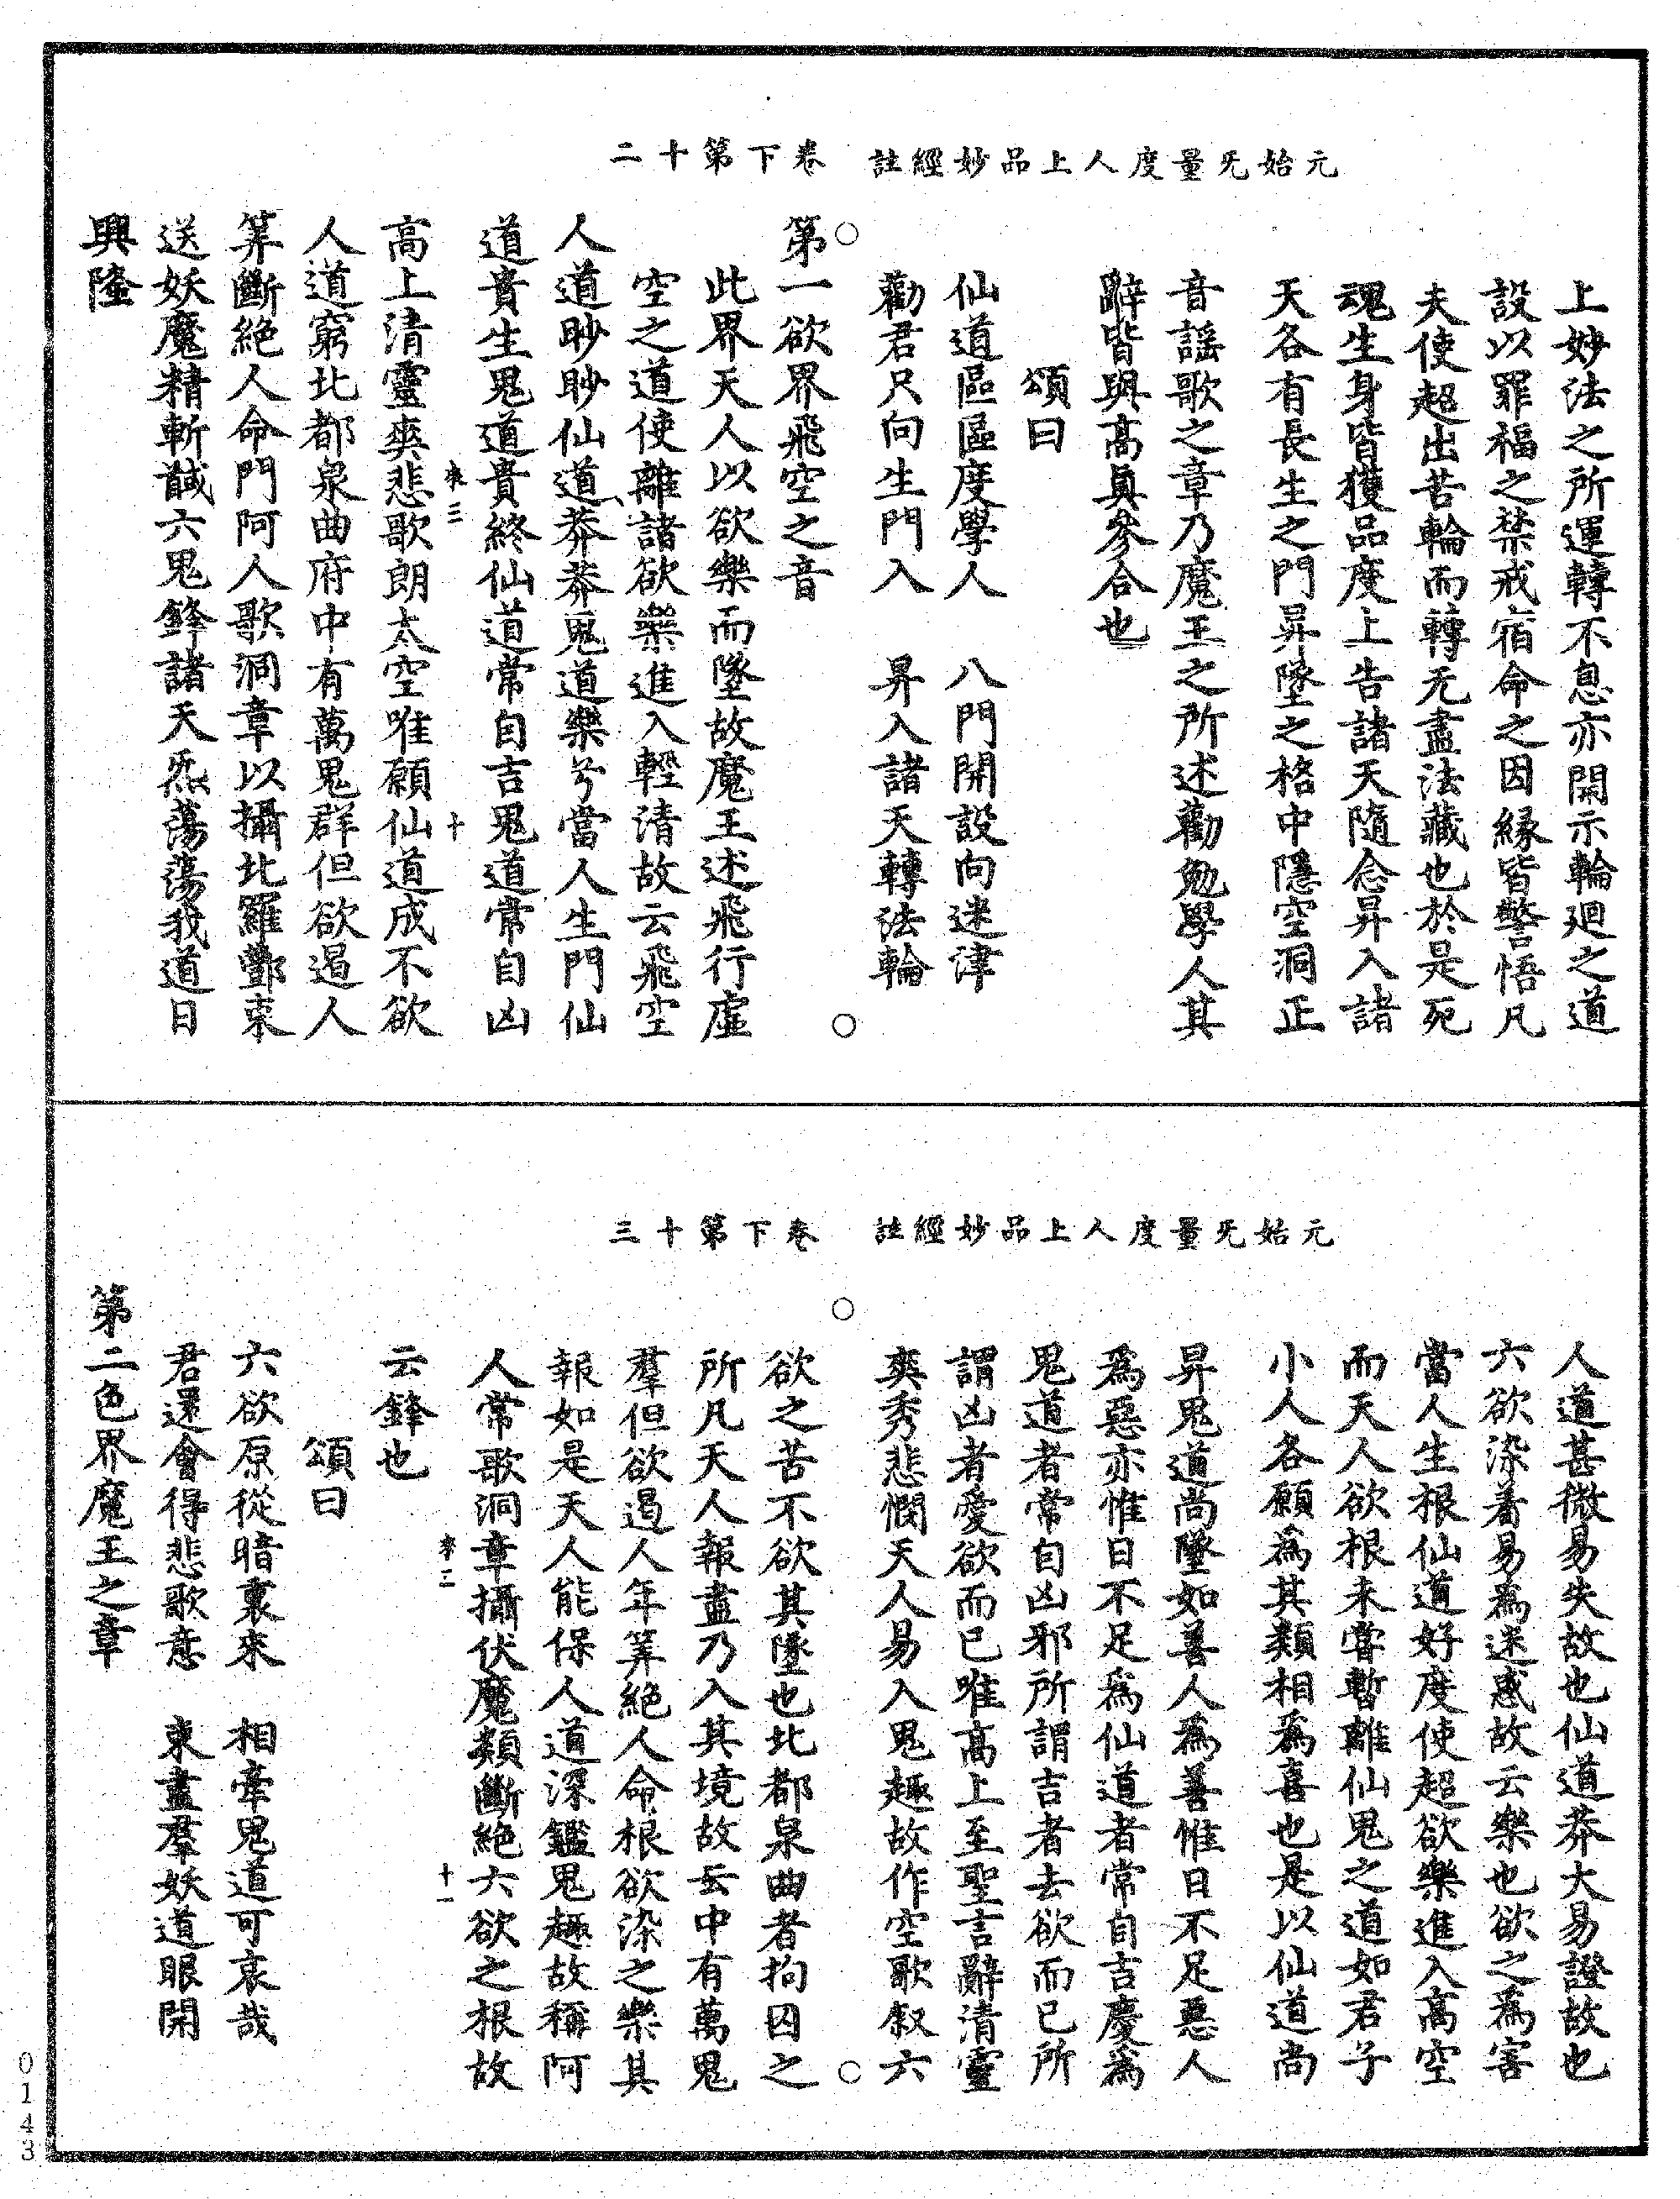 元始旡量度人上品妙經註　卷下第十二
上妙法之所運轉不息亦開示輪廻之道
設以罪福之禁戒宿命之因緣皆警悟凡
夫使超出苦輪而轉无盡法藏也於是死
魂生身皆獲品度上告諸天隨念昇入諸
天各有長生之門昇墜之格中隱空洞正
音謠歌之章乃魔王之所述勸勉學人其
辭皆與高眞參合也
頌曰
仙道區區度學人　八門開設向迷津
勸君只向生門入　昇入諸天轉法輪
第一欲界飛空之音
此界天人以欲樂而墜故魔王述飛行虛
空之道使離諸欲樂進入輕清故云飛空
人道眇眇仙道莽莽鬼道樂兮當人生門仙
道貴生鬼道貴終仙道常自吉鬼道常自凶
高上清靈爽悲歌朗太空唯願仙道成不欲
人道窮北都泉曲府中有萬鬼群但欲遏人
筭斷絕人命門阿人歌洞章以攝北羅酆束
送妖魔精斬馘六鬼鋒諸天炁蕩蕩我道日
興隆
元始旡量度人上品妙經註　卷下第十三
人道甚微易失故也仙道莽大易證故也
六欲染着易為迷惑故云樂也欲之為害
當人生根仙道好度使超欲樂進入高空
而天人欲根未嘗暫離仙鬼之道如君子
小人各願為其類相為喜也是以仙道尚
昇鬼道尚墜如善人為善惟日不足惡人
為惡亦惟日不足為仙道者常自吉慶為
鬼道者常自凶邪所謂吉者去欲而已所
謂凶者愛欲而已唯高上至聖言辭清靈
爽秀悲憫天人易入鬼趣故作空歌叙六
欲之苦不欲其墜也北都泉曲者拘囚之
所凡天人報盡乃入其境故云中有萬鬼
羣但欲遏人年筭絕人命根欲染之樂其
報如是天人能保人道深鑑鬼趣故稱阿
人常歌洞章攝伏魔類斷絕六欲之根故
云鋒也
頌曰
六欲原從暗裏來　相牽鬼道可哀哉
君還會得悲歌意　束盡羣妖道眼開
第二色界魔王之章
0143